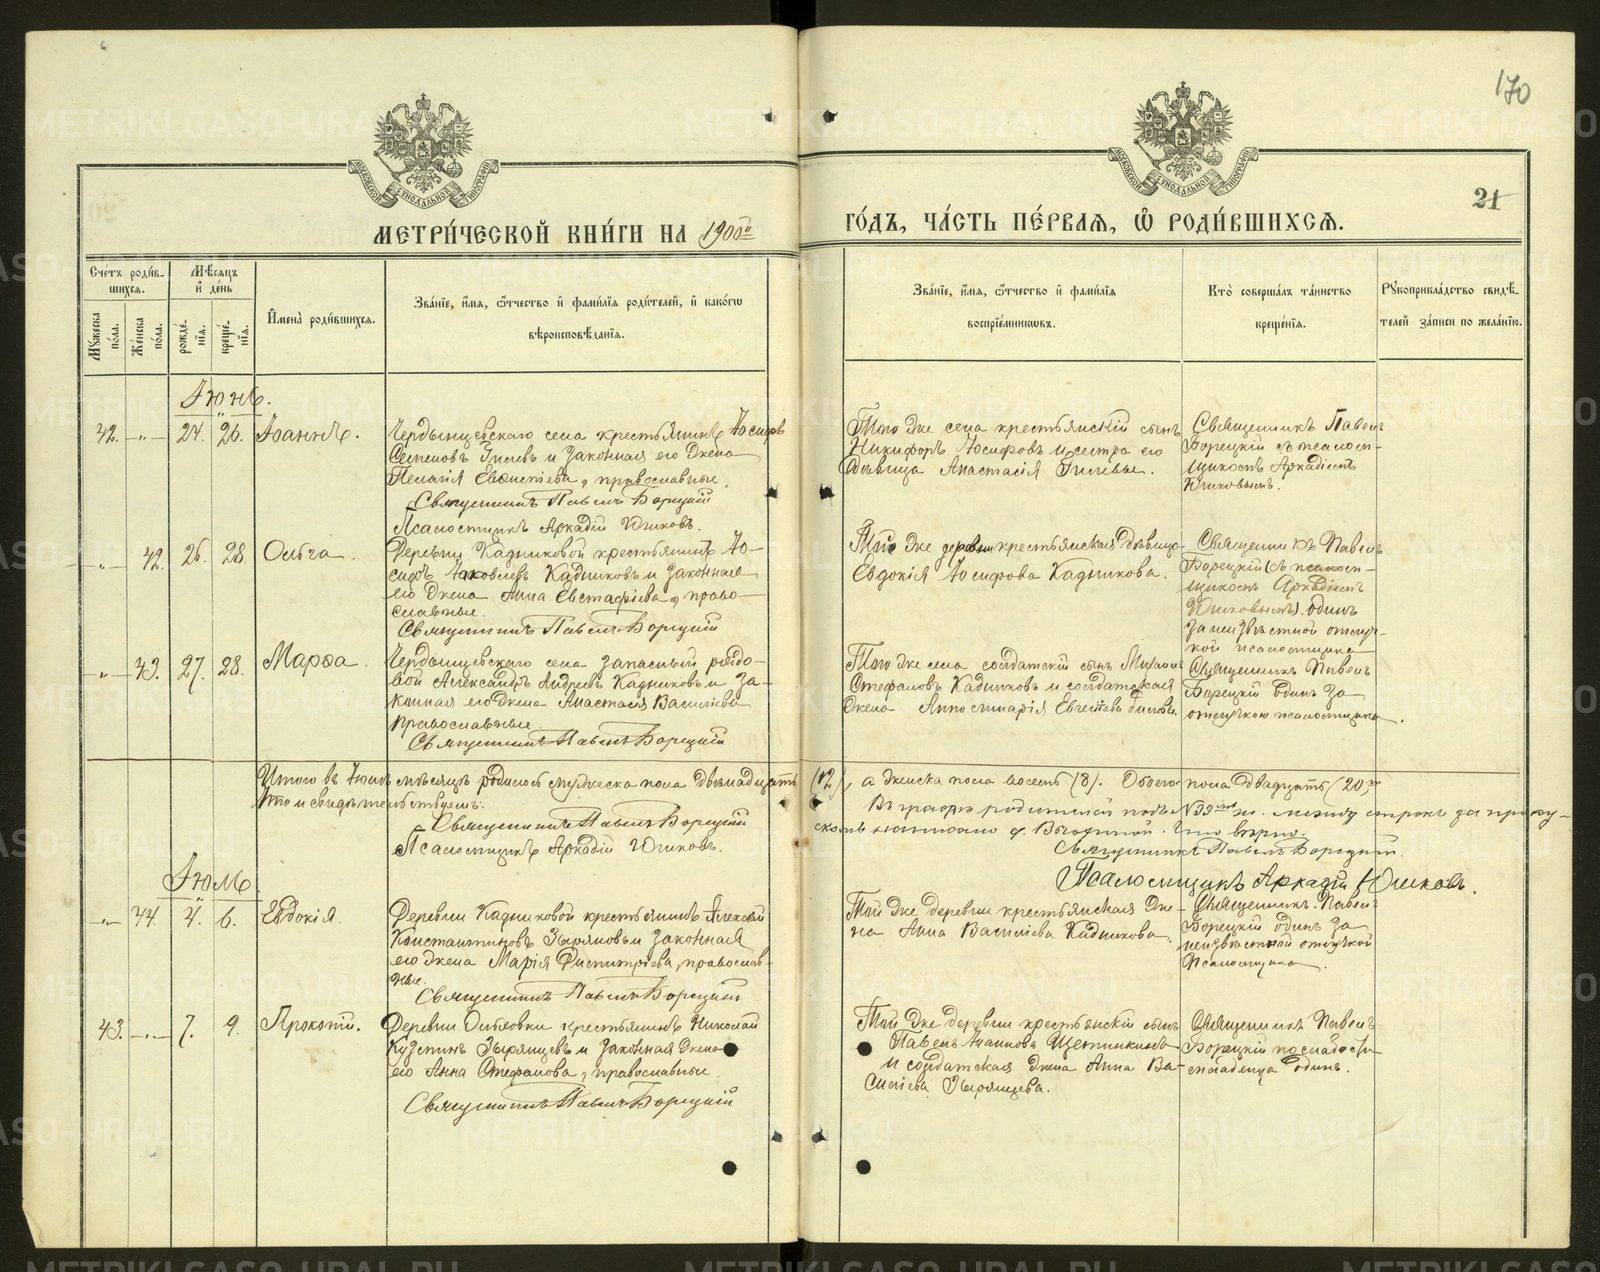 170
21
МЕТРИ́ЧЕСКОЙ КНИ́ГИ НА 1900й
ГО́ДЪ, ЧА́СТЬ ПЕ́РВАѦ, Ѡ҆ РОДИ́ВШИХСѦ.
Сче́тъ роди́в-
шихсѧ.
Мꙋ́жеска по́ла.
Же́нска по́ла.
Мѣ́сѧцъ
и҆ де́нь
рожде́-
нїѧ.
креще́-
нїѧ.
И҆мена̀ роди́вшихсѧ.
Зва́нїе, и҆́мѧ, ѻ҆́тчество и҆ фами́лїѧ роди́телей, и҆ како́гѡ
вѣроисповѣ́данїѧ.
Зва́нїе, и҆́мѧ, ѻ҆́тчество и҆ фами́лїѧ
воспрїе́мникѡвъ.
Кто̀ соверша́лъ та́инство
креще́нїѧ.
Рꙋкоприкла́дство свидѣ́-
телей за́писи по жела́нїю.
Іюнь.
42. -„- 24. 26. Іоаннъ.
крестьянинъ Іосифъ
Семеновъ и законная его жена
Пелагія православные.
Священникъ Павелъ Борецкій
Псаломщикъ Аркадій Юшковъ.
Того же села крестьянскій сынъ
Никифоръ Іосифовъ и сестра его
дѣвица Анастасія
Священникъ Павелъ
Борецкій съ псалом-
щикомъ Аркадіемъ
Юшковымъ.
-„- 42. 26. 28. Ольга.
Деревни Кадниковой крестьянинъ Іо-
сифъ Іаковлевъ Кадниковъ и законная
его жена Анна Евстафіева, право-
славные.
Священникъ Павелъ Борецкій
Той же деревни крестьянская дѣвица
Евдокія Іосифова Кадникова.
Священникъ Павелъ
Борецкій (съ псалом-
щикомъ Аркадіемъ
Юшковымъ) одинъ
за неизвѣстной отлуч-
кой псаломщика
-„- 43. 27. 28. Марѳа.
села запасный рядо-
вой Александръ Андреевъ Кадниковъ и за-
конная его жена Анастасія Василіева
православные.
Священникъ Павелъ Борецкій
Того же села солдатскій сынъ Михаилъ
Стефановъ Кадниковъ и солдатская
жена Апполинарія
Священникъ Павелъ
Борецкій одинъ за
отлучкою псаломщика.
Итого въ Іюнѣ мѣсяцѣ родилось мужеска пола двѣнадцать (12), а женска пола восемь (8). Обоего пола двадцать (20)
Что и свидѣтельствуемъ:
Священникъ Павелъ Борецкій
Псаломщикъ Аркадій Юшковъ.
Въ графѣ родителей подъ № 39 между строкъ за пропу-
скомъ написано Что вѣрно.
Священникъ Павелъ Борецкій.
Псаломщикъ Аркадій Юшковъ.
Іюль.
-„- 44. 4. 6. Евдокія.
Деревни Кадниковой крестьянинъ Алексѣй
Константиновъ Зыряновъ и законная
его жена Марія Димитріева, православ-
ные.
Священникъ Павелъ Борецкій
Той же деревни крестьянская же-
на Анна Василіева Кадникова.
Священникъ Павелъ
Борецкій одинъ за
неизвѣстной отлучкой
Псаломщика.
43. -„- 7. 9. Прокопій.
Деревни крестьянинъ Николай
Кузминъ Зырянцевъ и законная жена
его Анна Стефанова, православные.
Священникъ Павелъ Борецкій
Той же деревни крестьянскій сынъ
Павелъ Іоанновъ Щетинкинъ
и солдатская жена Анна Ва-
силіева Зырянцева.
Священникъ Павелъ
Борецкій по слабости
младенца одинъ.